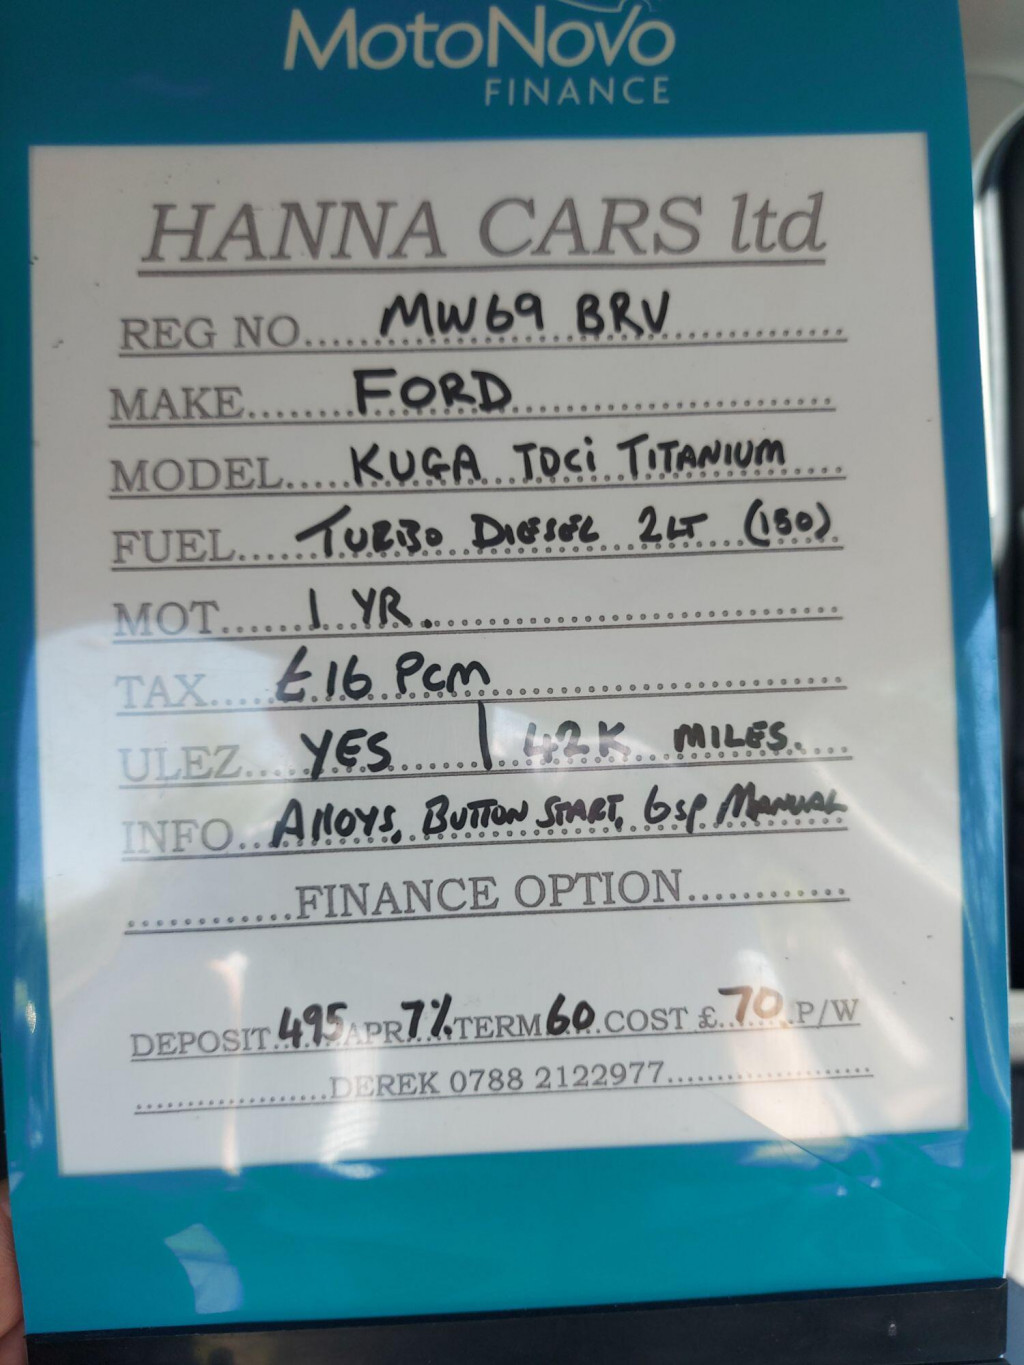 MotoNovo
FINANCE
HANNA CARS ltd
REG NO MW69 BRV
MAKE FORD
MODEL KUGA TDCi TITANIUM
FUEL TURBO DIESEL 2LT (150)
MOT 1 YR.
TAX £16 PCM
ULEZ YES | 42K MILES.
INFO Alloys, BUTTON START, 6sp MANUAL
FINANCE OPTION
DEPOSIT 495 APR 7% TERM 60 COST £ 70 P/W
DEREK 0788 2122977